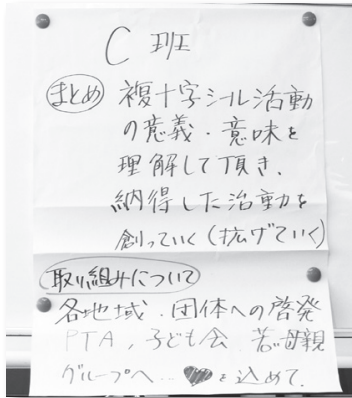 C 班
まとめ 複十字シール活動
の意義・意味を
理解して頂き、
納得した活動を
創っていく(拡げていく)
取り組みについて
各地域・団体への啓発
PTA、子ども会 若い母親
グループへ…♥を込めて、